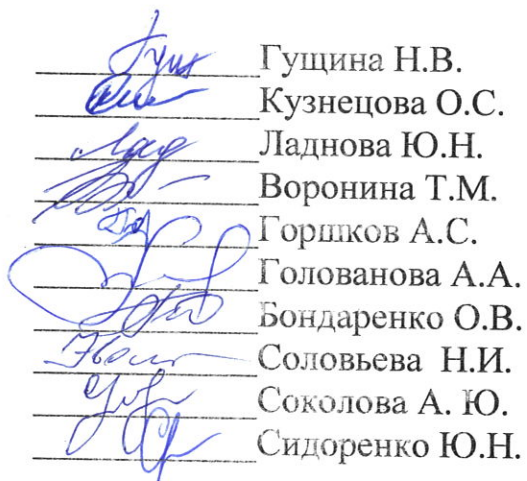 Гущина Н.В.
Кузнецова О.С.
Ладнова Ю.Н.
Воронина Т.М.
Горшков А.С.
Голованова А.А.
Бондаренко О.В.
Соловьева Н.И.
Соколова А. Ю.
Сидоренко Ю.Н.